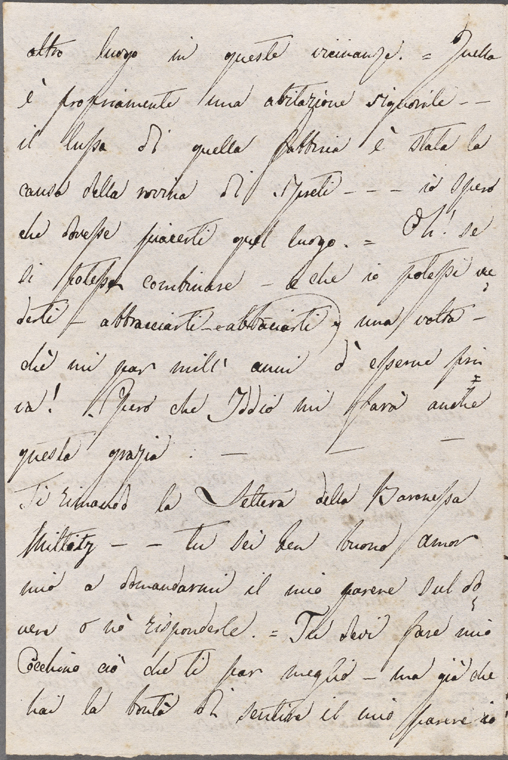 altro luogo in queste vicinanze. = Quella
è propriamente una abitazione signorile - -
il lusso di quella fabbrica è stata la
causa della rovina di - - - io spero
che dovesse piacerti quel luogo. = Oh! se
si potesse combinare - e che io potessi ve=
derti - abbracciarti - abbracciarti, una volta -
chè mi par mill' anni d' esserne pri=
va! Spero che Iddio mi farà anche
questa grazia. - - -
Ti rimando la Lettera della Baronessa
Miltitz - - tu sei ben buono amor
mio a domandarmi il mio parere sul do=
vere o nò risponderle. = Tu devi fare mio
Cecchino ciò che ti par meglio - ma già che
hai la bontà di sentire il mio parere io